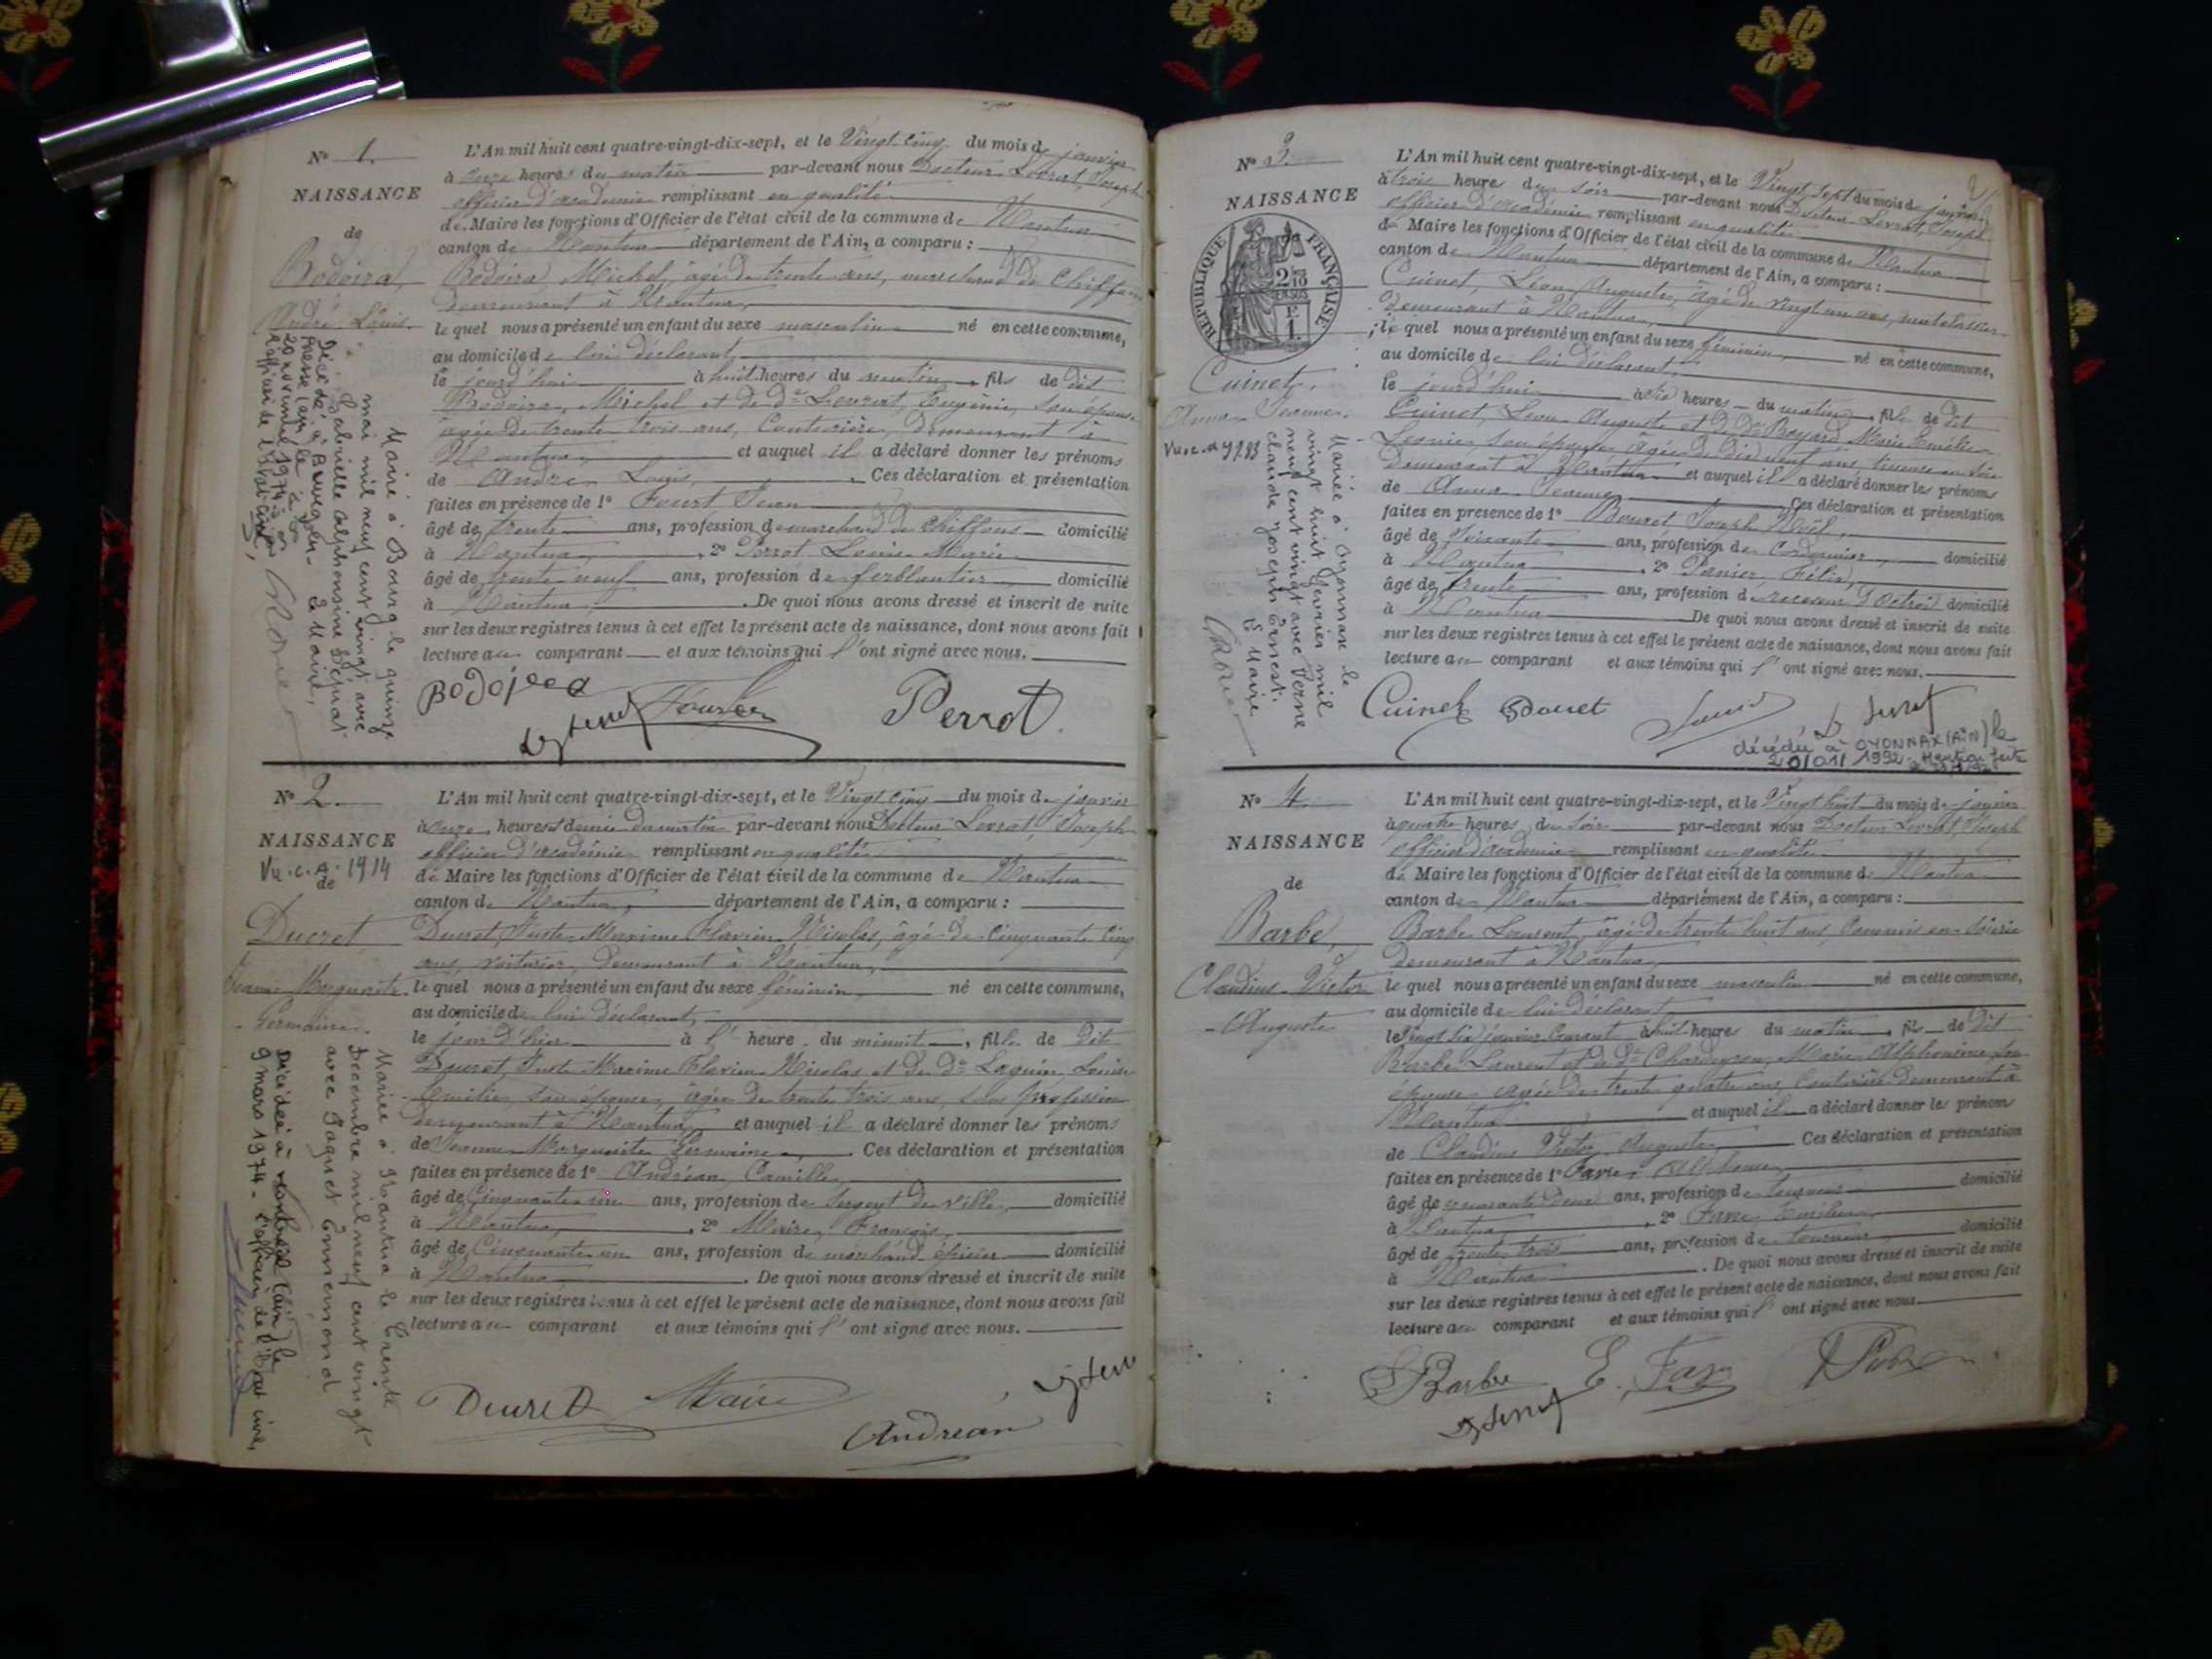 N° 1.
NAISSANCE
de
Bodoira,
André Louis.
Marié à Bourg le quinze
mai mil neuf cent vingt avec
Gabrielle Alphonsine
Décédé à
20 novembre 1974
l'officier de l'état civil,
L'An mil huit cent quatre-vingt-dix-sept, et le Vingt cinq du mois de janvier
à onze heures du matin par-devant nous Docteur Levrat, Joseph
officier d'académie remplissant en qualité
de Maire les fonctions d'Officier de l'état civil de la commune de Nantua
canton de Nantua département de l'Ain, a comparu :
Bodoira, Michel, âgé de trente ans, marchand de chiffons
demeurant à Nantua,
le quel nous a présenté un enfant du sexe masculin né en cette commune,
au domicile de lui déclarant,
le jourd'hui à huit heures du matin, fils de dit
Bodoira, Michel et de De Levrat, Eugénie, son épouse
âgée de trente trois ans, Couturière, demeurant à
Nantua, et auquel il a déclaré donner les prénoms
de André Louis, Ces déclaration et présentation
faites en présence de 1°
âgé de trente ans, profession de marchand de chiffons domicilié
à Nantua, 2° Perrot Louis Marie
âgé de trente neuf ans, profession de ferblantier domicilié
à Nantua, De quoi nous avons dressé et inscrit de suite
sur les deux registres tenus à cet effet le présent acte de naissance, dont nous avons fait
lecture au comparant et aux témoins qui l'ont signé avec nous.
Perrot
N° 2.
NAISSANCE
Vu. c. a. 1914
de
Ducret
Jeanne Marguerite
Germaine.
Mariée à Nantua le trente
Décembre mil neuf cent vingt
avec Paquet Emmemond
Décédée à Nantua (Ain) le
9 mars 1974 - l'officier de l'état civil,
L'An mil huit cent quatre-vingt-dix-sept, et le Vingt cinq du mois de janvier
à onze heures et demie du matin par-devant nous Docteur Levrat, Joseph
officier d'académie remplissant en qualité
de Maire les fonctions d'Officier de l'état civil de la commune de Nantua
canton de Nantua, département de l'Ain, a comparu :
Ducret, Juste Maxime Flavien Nicolas, âgé de Cinquante cinq
ans, voiturier, demeurant à Nantua,
le quel nous a présenté un enfant du sexe féminin né en cette commune,
au domicile de lui déclarant,
le jour d'hier à 1 heure du minuit, fille de dit
Ducret, Juste Maxime Flavien Nicolas et de De Louise
Emilie, son épouse, âgée de trente trois ans, sans profession
demeurant à Nantua, et auquel il a déclaré donner les prénoms
de Jeanne Marguerite Germaine, Ces déclaration et présentation
faites en présence de 1° Andréan, Camille,
âgé de Cinquante un ans, profession de Sergent de ville, domicilié
à Nantua, 2° Maire, François,
âgé de Cinquante un ans, profession de marchand épicier domicilié
à Nantua De quoi nous avons dressé et inscrit de suite
sur les deux registres tenus à cet effet le présent acte de naissance, dont nous avons fait
lecture au comparant et aux témoins qui l'ont signé avec nous.
Ducret Maire
Andréan
N° 3.
NAISSANCE
RÉPUBLIQUE FRANÇAISE
Cuinet,
Anna Jeanne.
Mariée à Oyonnax le
vingt huit février mil
neuf cent vingt avec Verne
Claude Joseph Ernest.
Le Maire
L'An mil huit cent quatre-vingt-dix-sept, et le Vingt sept du mois de janvier
à trois heures du soir par-devant nous Docteur Levrat, Joseph
officier d'académie remplissant en qualité
de Maire les fonctions d'Officier de l'état civil de la commune de Nantua
canton de Nantua département de l'Ain, a comparu :
Cuinet, Léon Auguste, âgé de vingt un ans, matelassier
demeurant à Nantua,
le quel nous a présenté un enfant du sexe féminin né en cette commune,
au domicile de lui déclarant,
le jourd'hui à dix heures du matin, fille de dit
Cuinet, Léon Auguste et de De Marie Emélie
son épouse âgée de dix neuf ans,
demeurant à Nantua et auquel il a déclaré donner les prénoms
de Anna Jeanne Ces déclaration et présentation
faites en présence de 1° Bouvet Joseph Noël,
âgé de soixante ans, profession de Cordonnier, domicilié
à Nantua, 2° Panier, Félix,
âgé de trente ans, profession de receveur d'octroi domicilié
à Nantua De quoi nous avons dressé et inscrit de suite
sur les deux registres tenus à cet effet le présent acte de naissance, dont nous avons fait
lecture au comparant et aux témoins qui l'ont signé avec nous.
Cuinet Bouvet
décédée à OYONNAX (AIN) le
20/01/1992
N° 4.
NAISSANCE
de
Barbe,
Claudius Victor
Auguste
L'An mil huit cent quatre-vingt-dix-sept, et le Vingt huit du mois de janvier
à quatre heures du soir par-devant nous Docteur Levrat, Joseph
officier d'académie remplissant en qualité
de Maire les fonctions d'Officier de l'état civil de la commune de Nantua
canton de Nantua département de l'Ain, a comparu :
Barbe Laurent, âgé de trente huit ans, Commis en soierie
demeurant à Nantua,
le quel nous a présenté un enfant du sexe masculin né en cette commune,
au domicile de lui déclarant
le Vingt six janvier courant à huit heures du matin, fils de dit
Barbe Laurent et de De Marie Alphonsine son
épouse âgée de trente quatre ans, Couturière demeurant à
Nantua et auquel il a déclaré donner les prénoms
de Claudius Victor Auguste Ces déclaration et présentation
faites en présence de 1° Favre Alphonse,
âgé de quarante deux ans, profession de tourneur domicilié
à Nantua, 2° Favre,
âgé de trente trois ans, profession de tourneur, domicilié
à Nantua. De quoi nous avons dressé et inscrit de suite
sur les deux registres tenus à cet effet le présent acte de naissance, dont nous avons fait
lecture au comparant et aux témoins qui l'ont signé avec nous.
Barbe